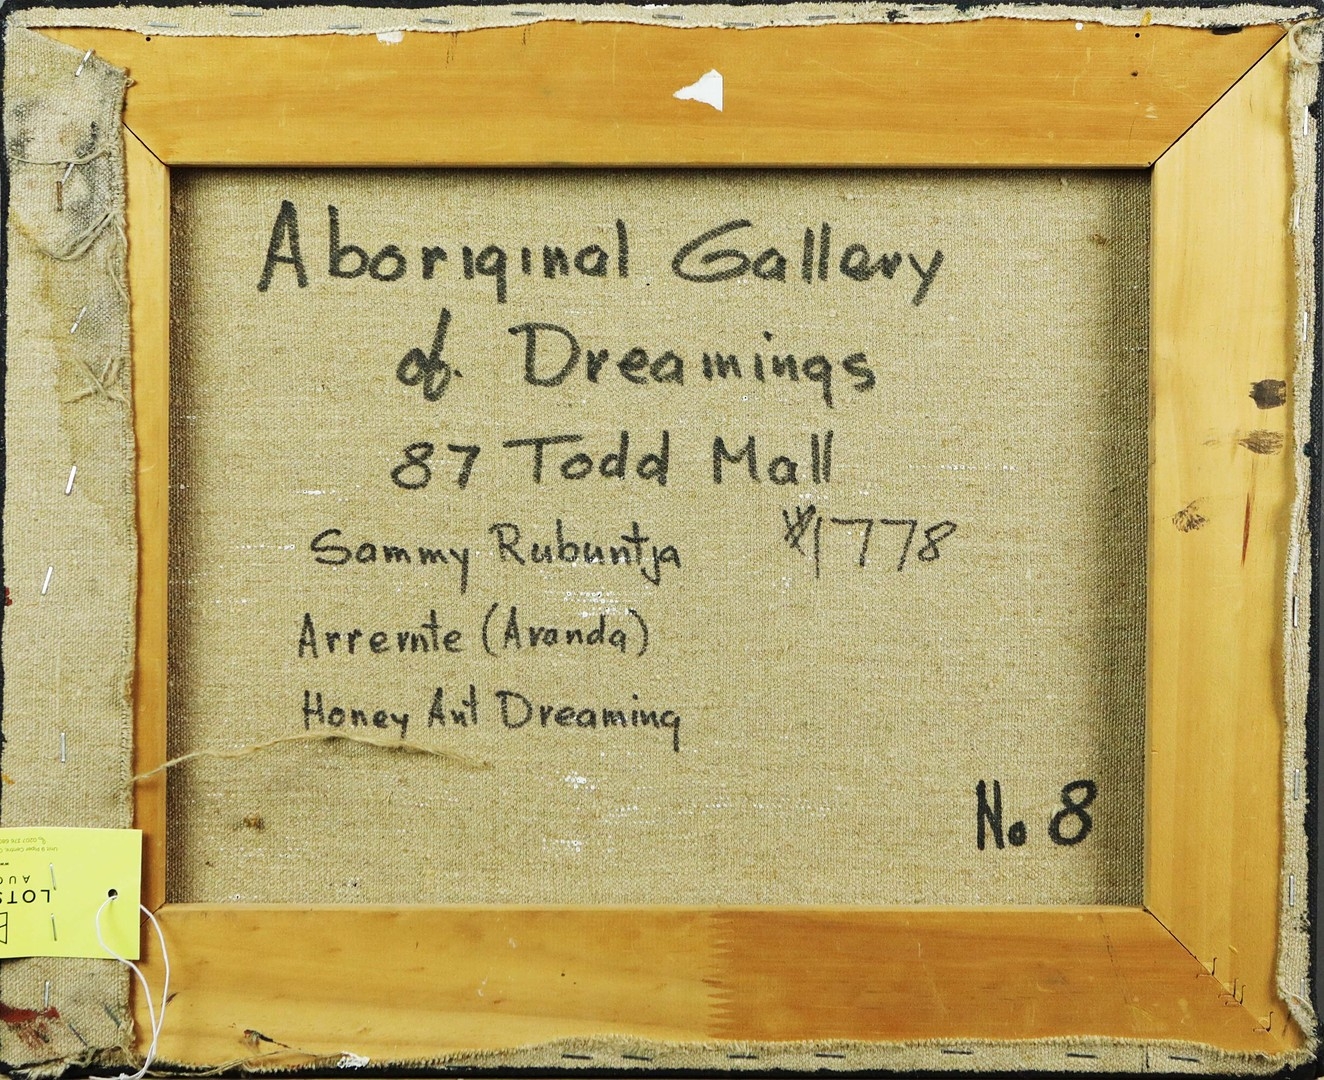 Aboriginal Gallery
of Dreamings
87 Todd Mall
Sammy Rubuntja #1778
Arrernte (Aranda)
Honey Ant Dreaming
No 8
LOTS